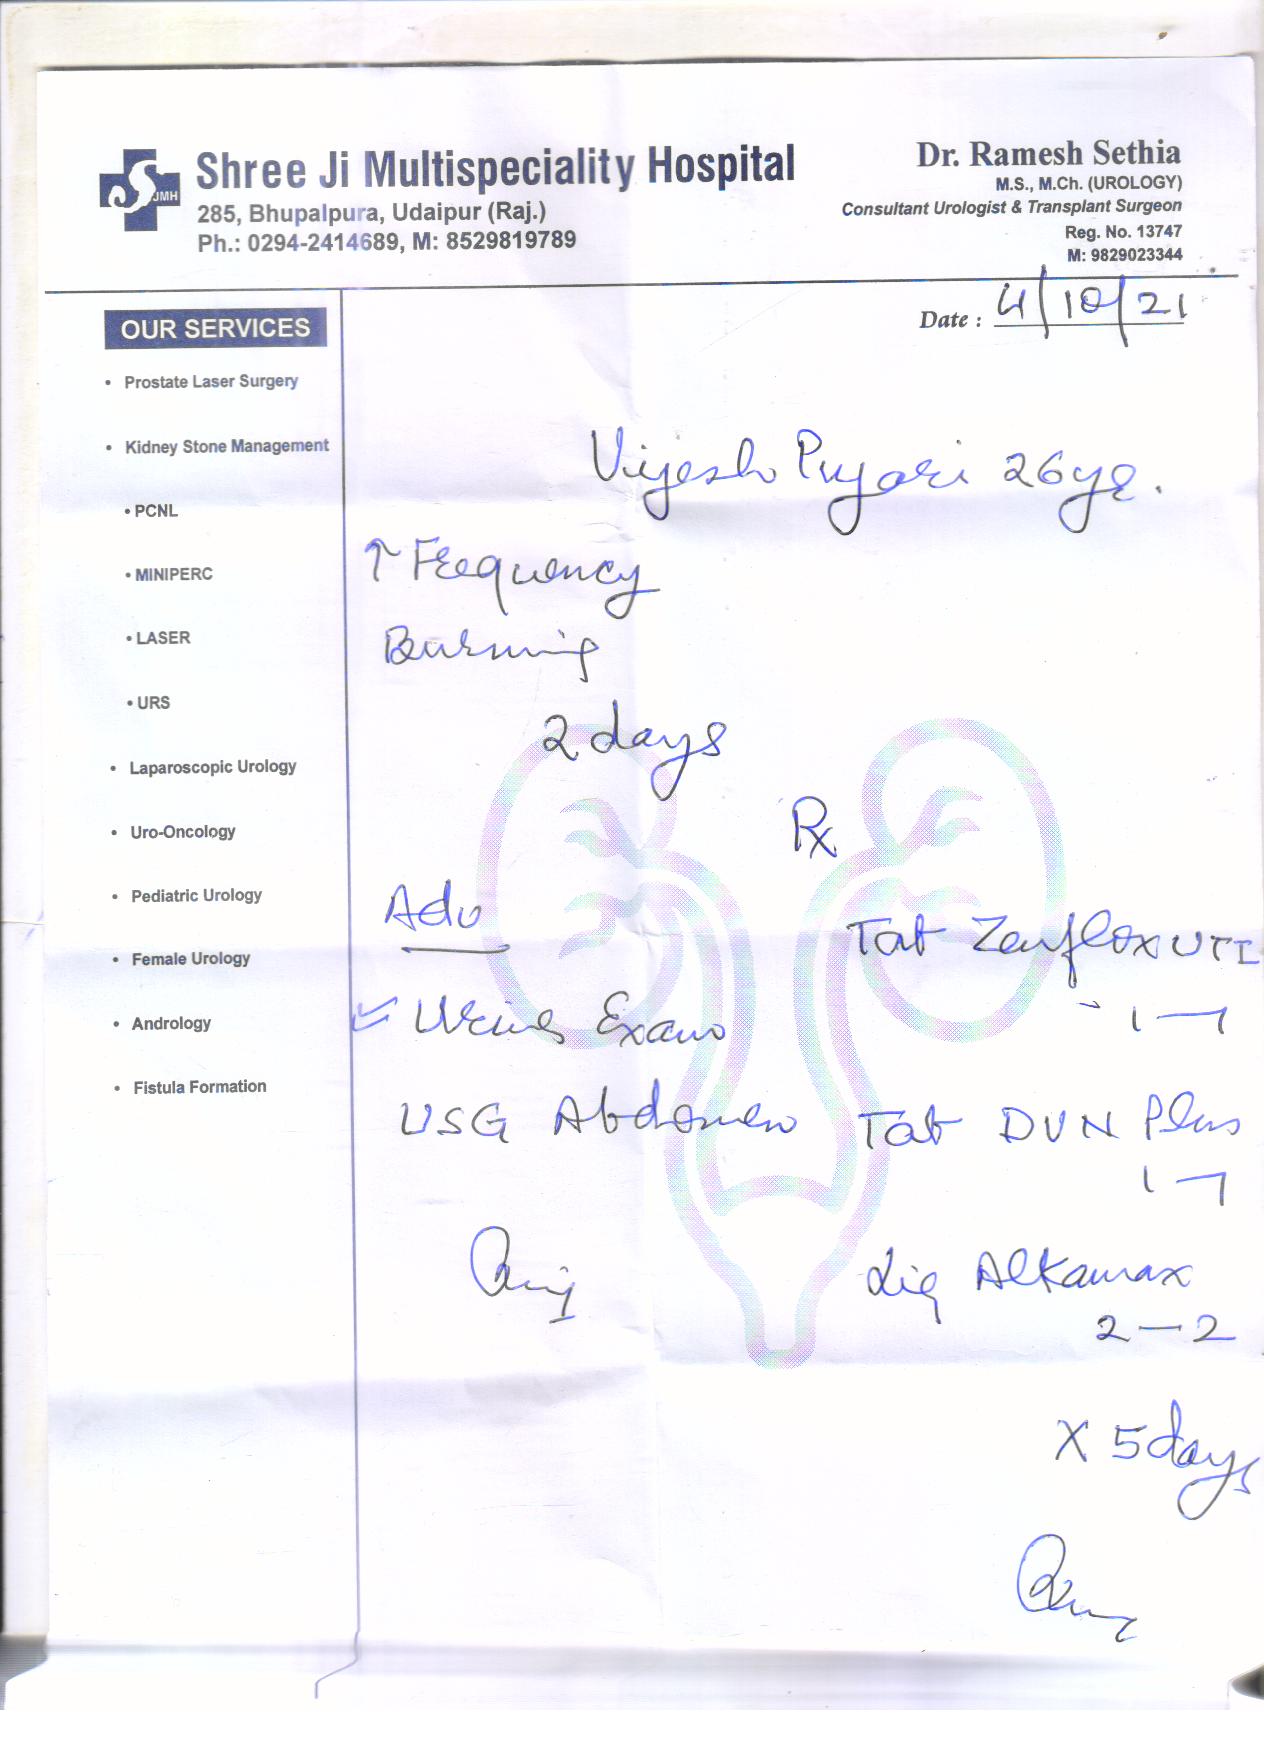 Shree Ji Multispeciality Hospital
285, Bhupalpura, Udaipur (Raj.)
Ph.: 0294-2414689, M: 8529819789
JMH
Dr. Ramesh Sethia
M.S., M.Ch. (UROLOGY)
Consultant Urologist & Transplant Surgeon
Reg. No. 13747
M: 9829023344
Date : 4/10/21
OUR SERVICES
• Prostate Laser Surgery
• Kidney Stone Management
• PCNL
• MINIPERC
• LASER
• URS
• Laparoscopic Urology
• Uro-Oncology
• Pediatric Urology
• Female Urology
• Andrology
• Fistula Formation
Vijesh Pujari 26yr.
↑ Frequency
Burning
2 days
Rx
Adv
Urine Exam
USG Abdomen
Tab Zenflox UTI
1 — 1
Tab DVN Plus
1 — 1
Liq Alkamax
2 — 2
X 5 days